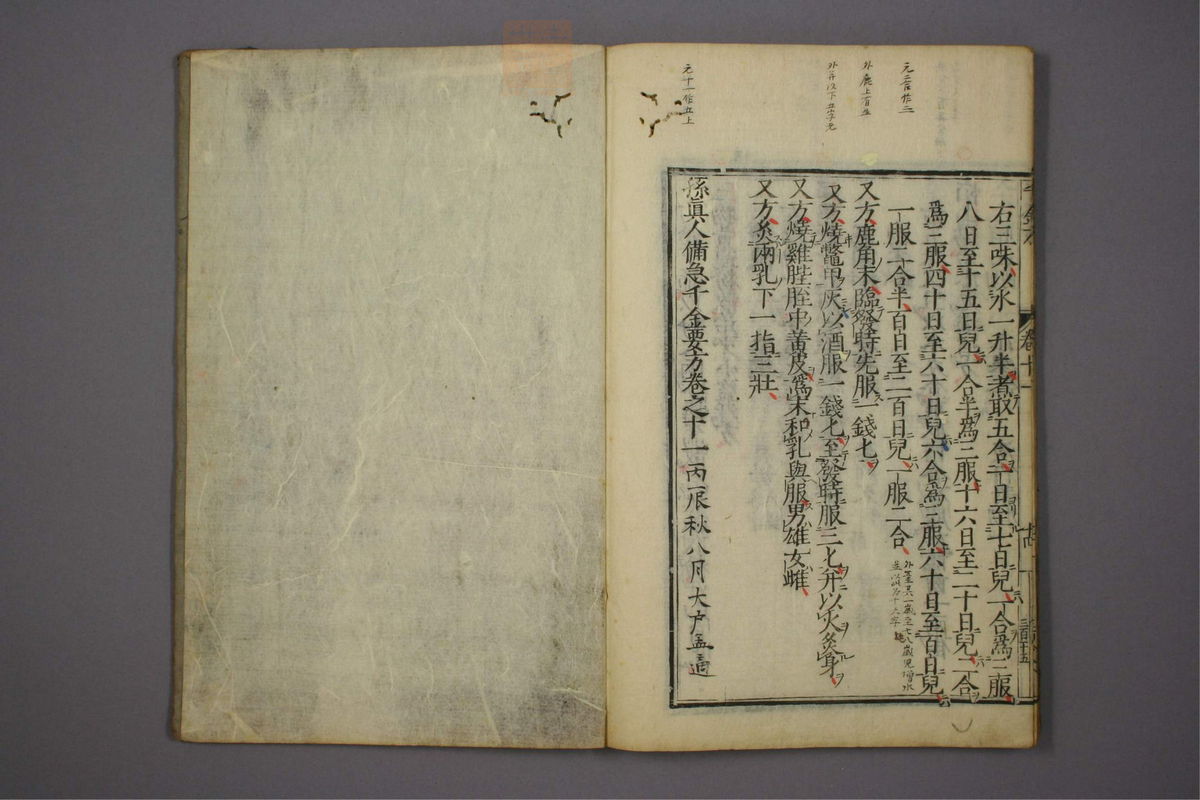 元二合作三
外鹿上有生
外并以下五字无
元十一作五上
卷十一
右三味以水一升半煮取五合一日至七日兒一合為三服
八日至十五日兒一合半為三服十六日至二十日兒二合
為三服四十日至六十日兒六合為三服六十日至百日兒
一服二合半百日至二百日兒一服三合
又方鹿角末臨發時先服一錢匕
又方燒鱉甲灰以酒服一錢匕至發時服三匕并以火炙身
又方燒雞膍胵中黃皮為末和乳與服男雄女雌
又方炙兩乳下一指三壯
孫真人備急千金要方卷之十一 丙辰秋八月大戶孟適